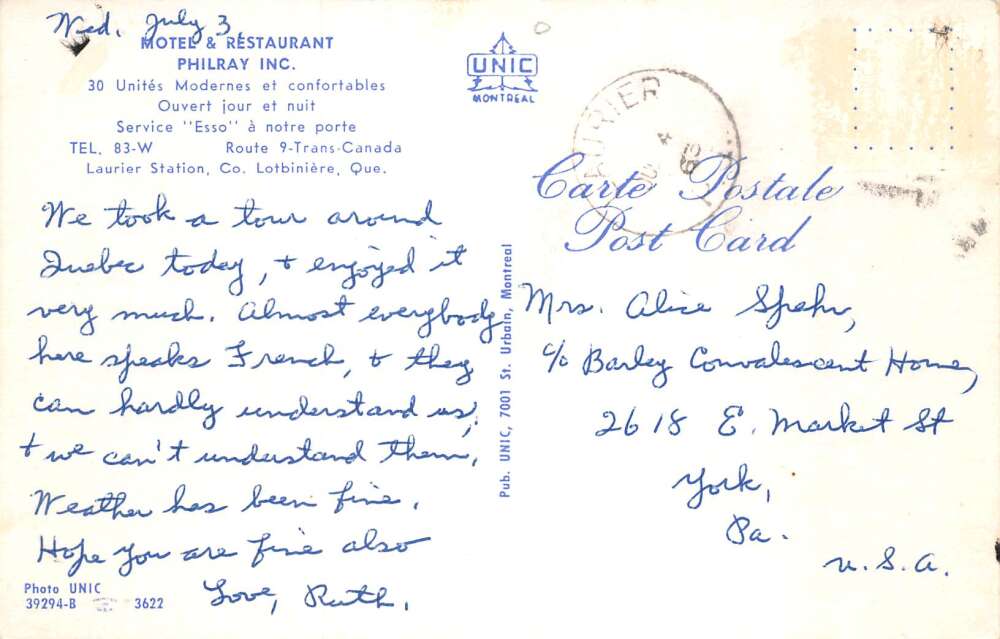 Wed. July 3,
MOTEL & RESTAURANT
PHILRAY INC.
30 Unités Modernes et confortables
Ouvert jour et nuit
Service "Esso" à notre porte
TEL. 83-W Route 9-Trans-Canada
Laurier Station, Co. Lotbinière, Que.
We took a tour around
Quebec today, + enjoyed it
very much. Almost everybody
here speaks French, + they
can hardly understand us,
+ we can't understand them,
Weather has been fine.
Hope you are fine also
Love, Ruth.
Photo UNIC
39294-B 3622
Pub. UNIC, 7001 St. Urbain, Montreal
UNIC
MONTREAL
Carte Postale
Post Card
Mrs. Alice Spehr,
c/o Barley Convalescent Home,
2618 E. Market St
York,
Pa.
U.S.A.